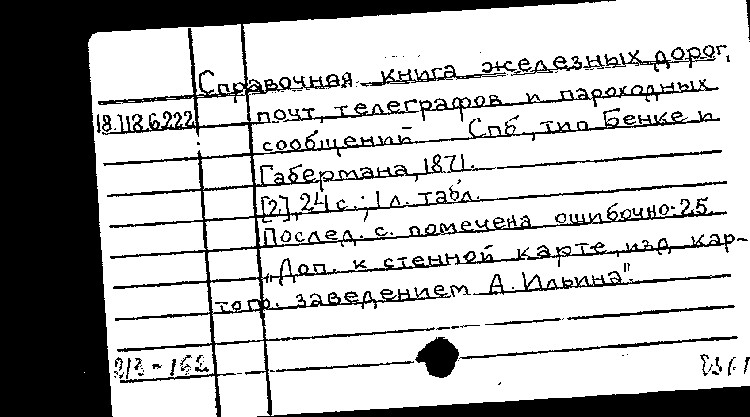 Справочная книга железных дорог,
18.118.6.222 почт, телеграфов и пароходных
сообщений. Спб, тип Бенке и
Габермана, 1871.
[2], 24 с.; 1 л. табл.
Послед. с. помечена ошибочно: 25.
„Доп. к стенной карте, изд. кар-
тогр. заведением А. Ильина".
213 - 162